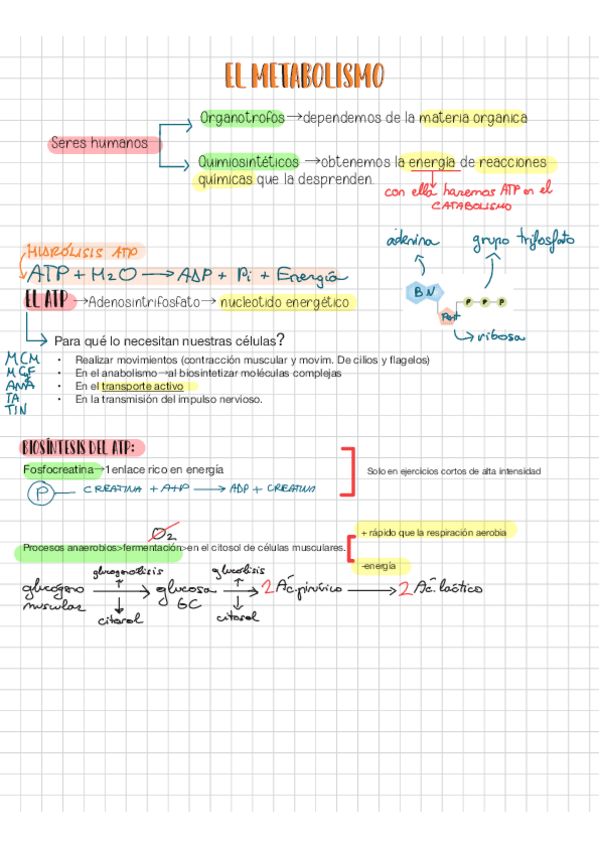 EL METABOLISMO
Organotrofos→dependemos de la materia organica
Seres humanos
Quimiosintéticos →obtenemos la energía de reacciones
químicas que la desprenden.
con ella haremos ATP en el
CATABOLISMO
adenina
grupo trifosfato
HIDRÓLISIS ATP
ATP + H2O → ADP + Pi + Energía
BN
P P P
Pent
ribosa
EL ATP →Adenosintrifosfato→ nucleotido energético
Para qué lo necesitan nuestras células?
MCM
MCF
ANA
TA
TIN
• Realizar movimientos (contracción muscular y movim. De cilios y flagelos)
• En el anabolismo→al biosintetizar moléculas complejas
• En el transporte activo
• En la transmisión del impulso nervioso.
BIOSÍNTESIS DEL ATP:
Fosfocreatina→1enlace rico en energía
Solo en ejercicios cortos de alta intensidad
P CREATINA + ATP → ADP + CREATINA
O2
+ rápido que la respiración aerobia
Procesos anaerobios>fermentación>en el citosol de células musculares.
-energía
glucogenolisis
glucolisis
glucógeno muscular → glucosa 6C → 2 Ác. pirúvico → 2 Ác. láctico
citosol
citosol